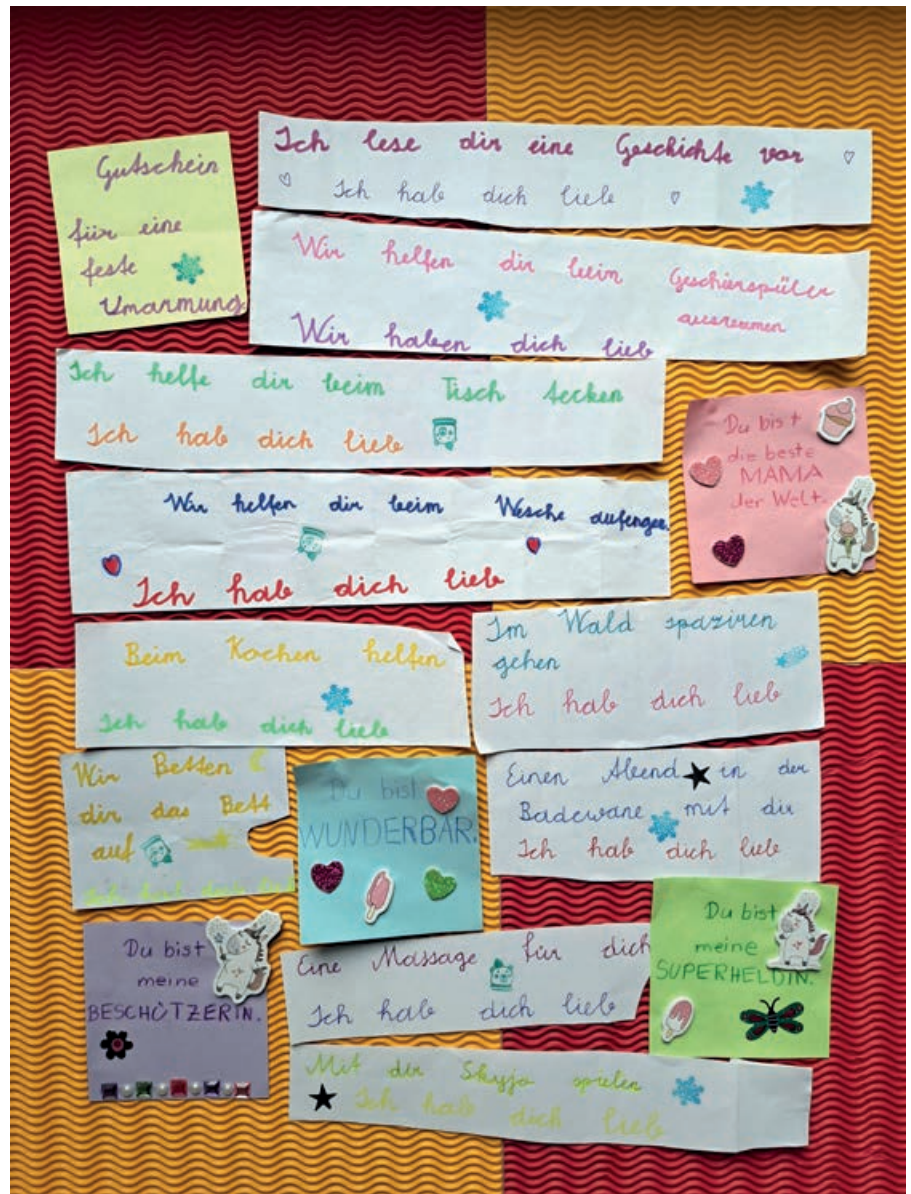 Gutschein
für eine
feste
Umarmung
Ich lese dir eine Geschichte vor
Ich hab dich lieb
Wir helfen dir beim Geschirspüler
ausreumen
Wir haben dich lieb
Ich helfe dir beim Tisch decken
Ich hab dich lieb
Du bist
die beste
MAMA
der Welt.
Wir helfen dir beim Wesche aufengen.
Ich hab dich lieb
Beim Kochen helfen
Ich hab dich lieb
Im Wald spaziren
gehen
Ich hab dich lieb
Wir Betten
dir das Bett
auf
Ich hab dich lieb
Du bist
WUNDERBAR.
Einen Abend in der
Badewane mit dir
Ich hab dich lieb
Du bist
meine
BESCHÜTZERIN.
Eine Massage für dich
Ich hab dich lieb
Du bist
meine
SUPERHELDIN.
Mit dir Skyjo spielen
Ich hab dich lieb